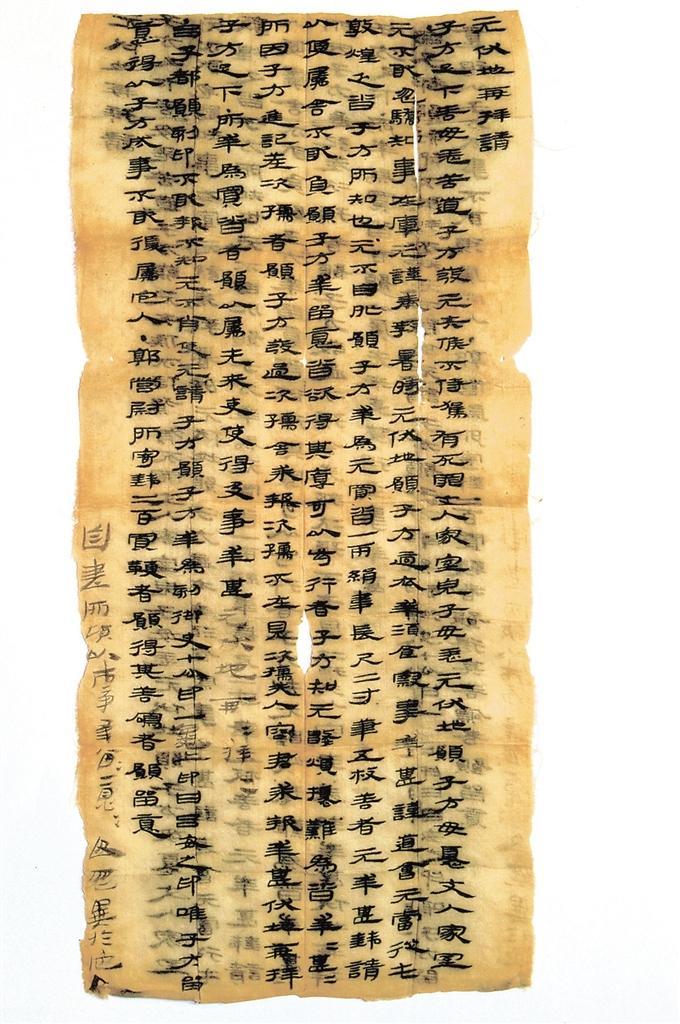 元伏地再拜請
子方足下善毋恙苦道子方發元失候不侍駕有死罪丈人家室兒子毋恙元伏地願子方毋憂丈人家室
元不敢忽驕知事在庫元謹奉教暑時元伏地願子方適衣幸酒食察事幸甚謹道會元當從屯
敦煌乏沓子方所知也元不自外願子方幸為元買沓一兩絹韋長尺二寸筆五枚善者元幸甚錢請
以便屬舍不敢負願子方幸留意沓欲得其厚可以步行者子方知元數煩擾難為沓幸=甚=
所因子方進記差次孺者願子方發過次孺舍求報次孺不在見次孺夫人容君求報幸甚伏地再拜
子方足下·所幸為買沓者願以屬先來吏使得及事幸甚元伏地再=拜=
·呂子都願刻印不敢報不知元不肖使元請子方願子方幸為刻御史七分印一龜上印曰呂安之印唯子方留
意得以子方成事不敢復屬它人·郭營尉所寄錢二百買鞭者願得其善鳴者願留意
自書所願以市事幸留=意=毋忽異於它人